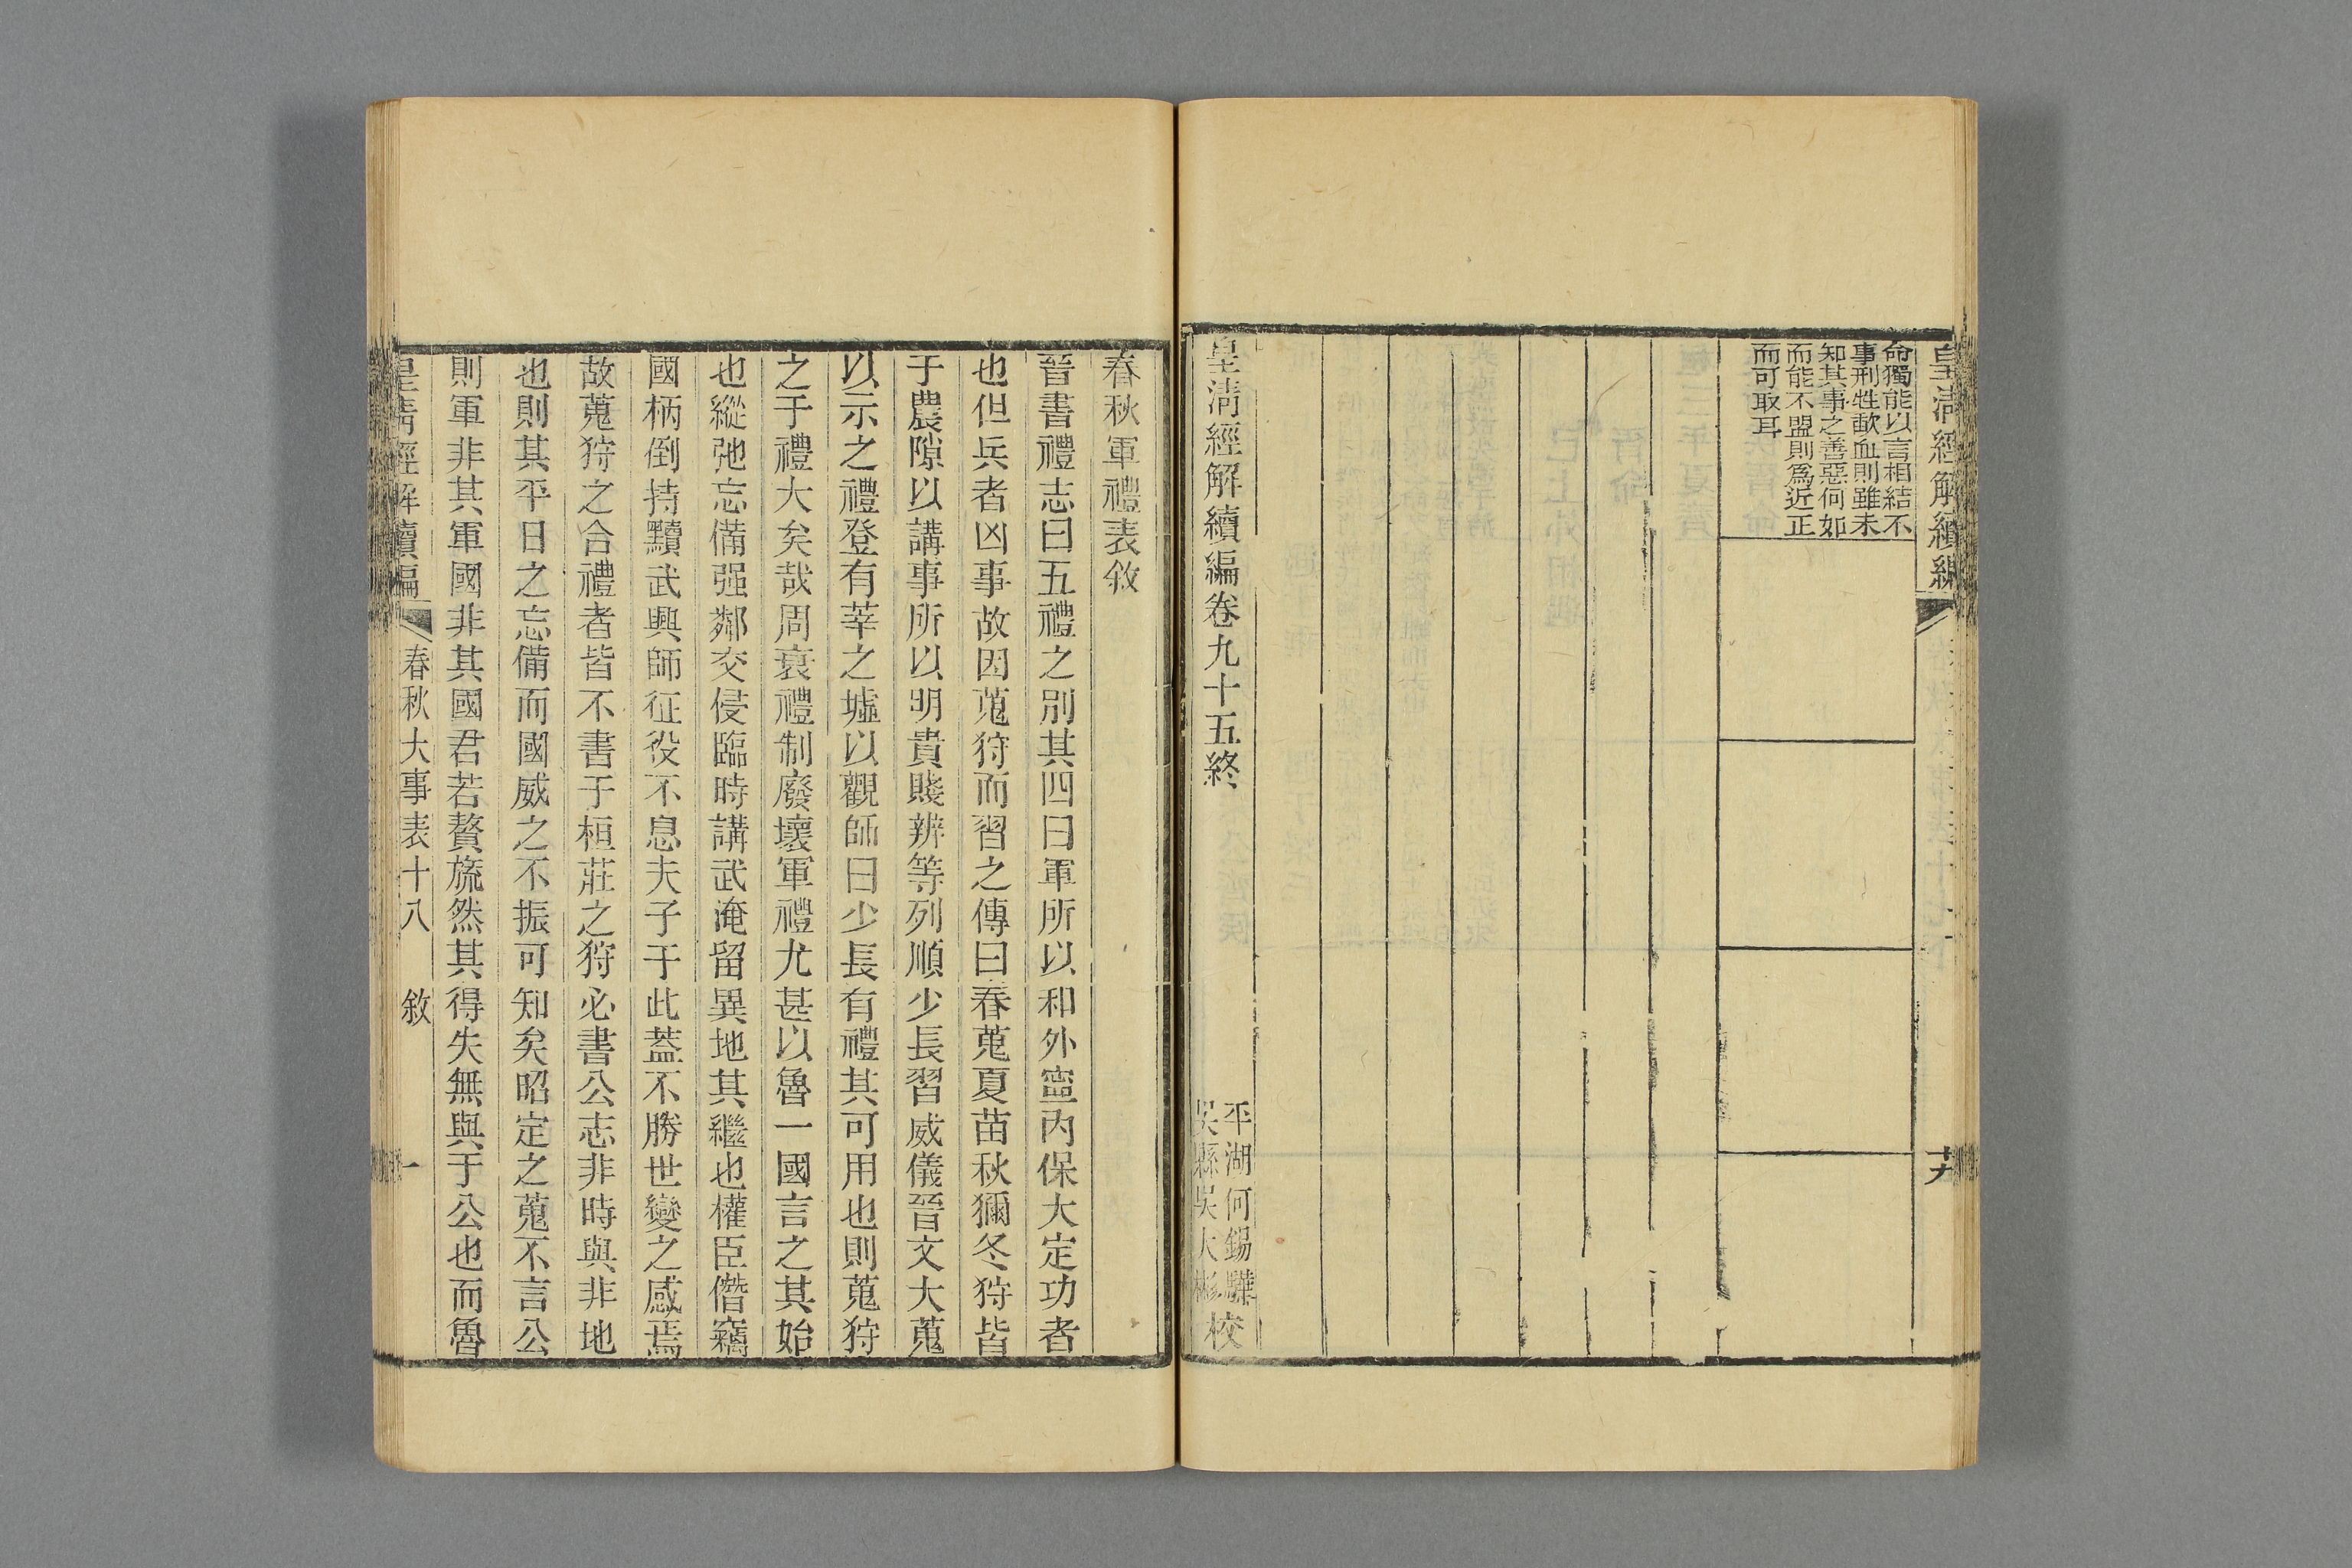 皇清經解續編
十九
命獨能以言相結不
事刑牲歃血則雖未
知其事之善惡何如
而能不盟則為近正
而可取耳
皇清經解續編卷九十五終
平湖何錫驊
吳縣吳大彬
校
春秋軍禮表敘
晉書禮志曰五禮之別其四曰軍所以和外寧內保大定功者
也但兵者凶事故因蒐狩而習之傳曰春蒐夏苗秋獮冬狩皆
于農隙以講事所以明貴賤辨等列順少長習威儀晉文大蒐
以示之禮登有莘之墟以觀師曰少長有禮其可用也則蒐狩
之于禮大矣哉周衰禮制廢壞軍禮尤甚以魯一國言之其始
也縱弛忘備强鄰交侵臨時講武淹留異地其繼也權臣僭竊
國柄倒持黷武興師征役不息夫子于此蓋不勝世變之感焉
故蒐狩之合禮者皆不書于桓莊之狩必書公志非時與非地
也則其平日之忘備而國威之不振可知矣昭定之蒐不言公
則軍非其軍國非其國君若贅旒然其得失無與于公也而魯
皇清經解續編 春秋大事表十八 敘 一